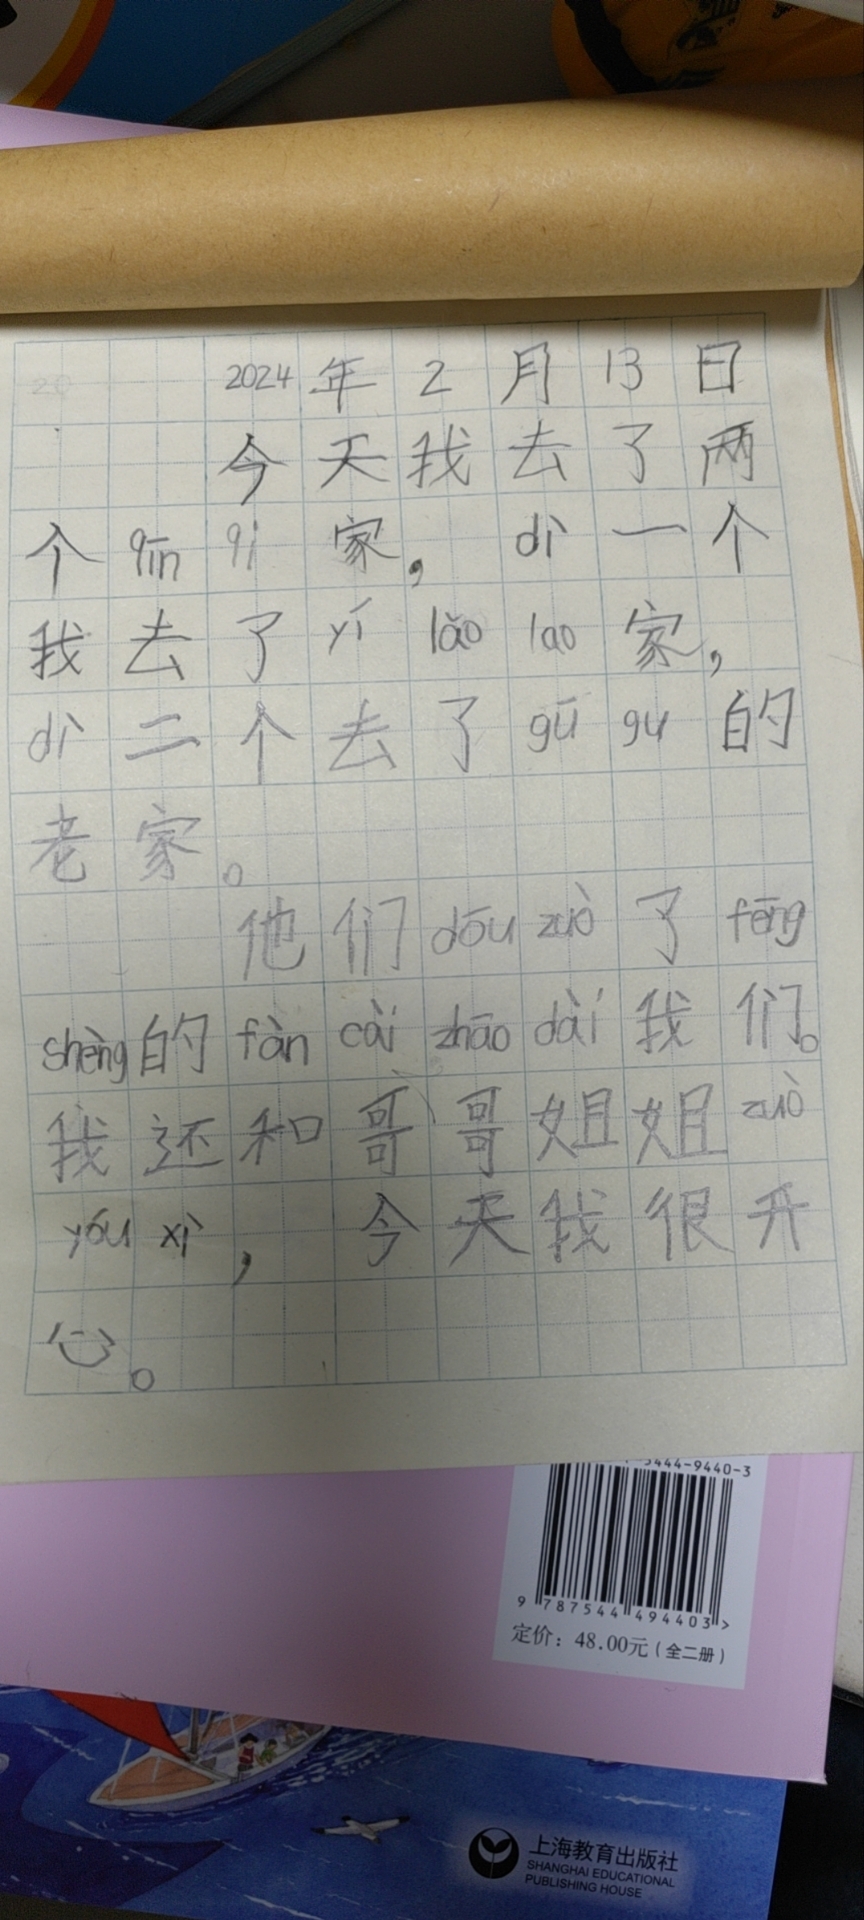 2024年2月13日
今天我去了两
个qīn qi家，dì一个
我去了yí lǎo lao家，
dì二个去了gū gu的
老家。
他们dōu zuò了fēng
shèng的fàn cài zhāo dài我们。
我还和哥哥姐姐zuò
yóu xì，今天我很开
心。
5444-9440-3
9 787544 494403 >
定价：48.00元（全二册）
上海教育出版社
SHANGHAI EDUCATIONAL
PUBLISHING HOUSE